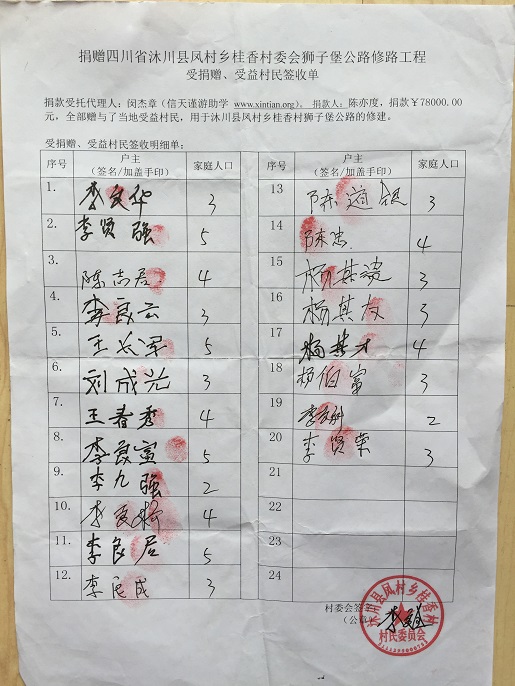 捐赠四川省沐川县凤村乡桂香村委会狮子堡公路修路工程
受捐赠、受益村民签收单
捐款受托代理人：闵杰章（信天谨游助学 www.xintian.org）。捐款人：陈亦度，捐款￥78000.00
元，全部赠与了当地受益村民，用于沐川县凤村乡桂香村狮子堡公路的修建。
受捐赠、受益村民签收明细单：
序号 户主（签名/加盖手印） 家庭人口
1. 李良华 3
2. 李贤强 5
3. 陈志居 4
4. 李良云 3
5. 王长军 5
6. 刘成光 3
7. 王春秀 4
8. 李良富 5
9. 李九强 2
10. 李良 4
11. 李良居 5
12. 李良成 3
序号 户主（签名/加盖手印） 家庭人口
13 陈道银 3
14 陈忠 4
15 杨其 3
16 杨其友 3
17 杨其才 4
18 杨伯富 3
19 李 2
20 李贤荣 3
21
22
23
24
村委会签字
（公章）
沐川县凤村乡桂香村
村民委员会